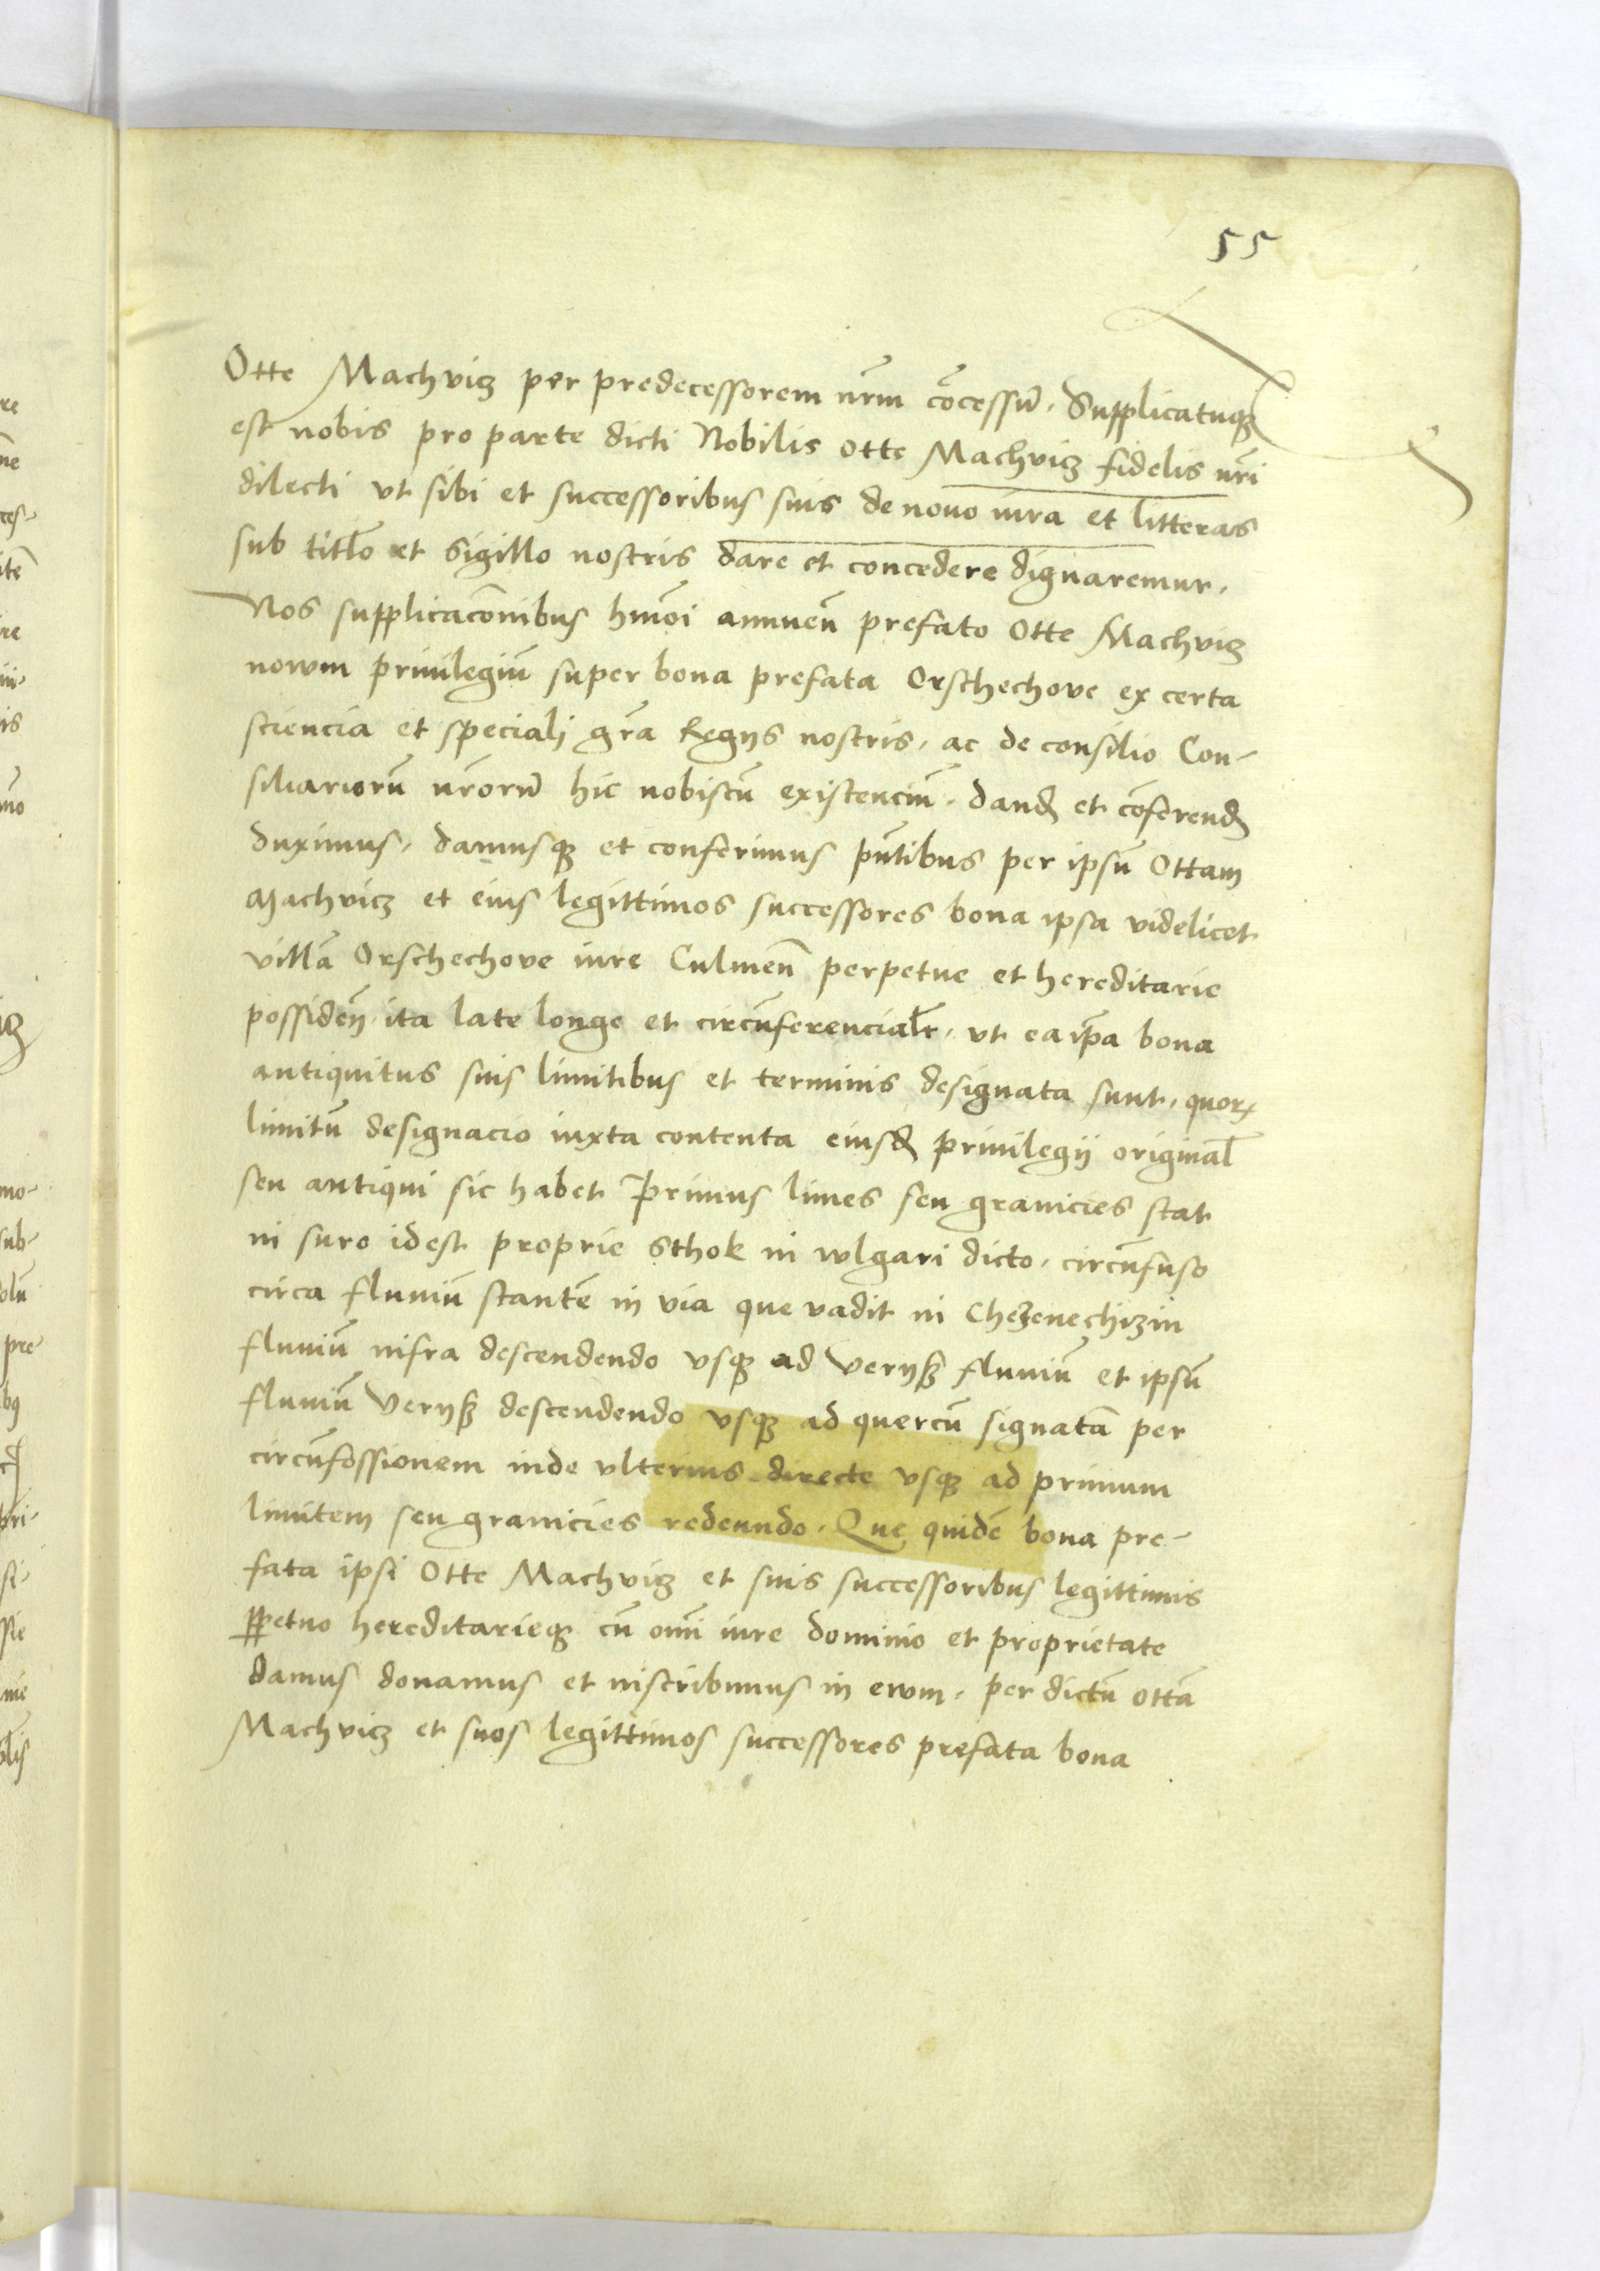 55
Otte Machvicz per predecessorem nr̃m cõcessũ. Supplicatuqꝫ
est nobis pro parte dicti Nobilis Otte Machvicz fidelis nr̃i
dilecti vt sibi et successoribus suis de nouo iura et litteras
sub titl̃o et sigillo nostris dare et concedere dignaremur.
Nos supplicacõnibus hmõi annuen̄ prefato Otte Machvicz
nowm priuilegiũ super bona prefata Orschechove ex certa
sciencia et speciali gr̃a Regijs nostris, ac de consilio Con-
siliariorũ nr̃orũ hic nobiscũ existenciũ. dand̃ et cõferend̃
duximus, damusqꝫ et conferimus pñtibus per ipsũ Ottam
Machvicz et eius legittimos successores bona ipsa videlicet
villã Orschechove iure Culmen̄ perpetue et hereditarie
possiden̄. ita late longe et circũferencialr̃, vt ea ip̃a bona
antiquitus suis limitibus et terminis designata sunt, quoꝝ
limitũ designacio iuxta contenta eiusd̃ priuilegij original̃
seu antiqui sic habet Primus limes seu granicies stat
in suro id est proprie sthok in wlgari dicto, circũfuso
circa fluuiũ stantẽ in via que vadit in Chezenechizin
fluuiũ infra descendendo vsqꝫ ad Verijß fluuiũ et ipsũ
fluuiũ Verijß descendendo vsqꝫ ad quercũ signatã per
circũfossionem inde vlterius directe vsqꝫ ad primum
limitem seu granicies redeundo. Que quidẽ bona pre-
fata ipsi Otte Machvicz et suis successoribus legittimis
ꝑpetuo hereditarieqꝫ cũ om̃i iure dominio et proprietate
damus donamus et inscribimus in ewm, per dictũ Ottã
Machvicz et suos legittimos successores prefata bona